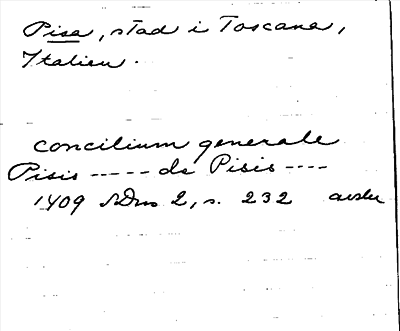 Pisa, stad i Toscana,
Italien.
concilium generale
Pisis ----- de Pisis ----
1409 SDns 2, s. 232